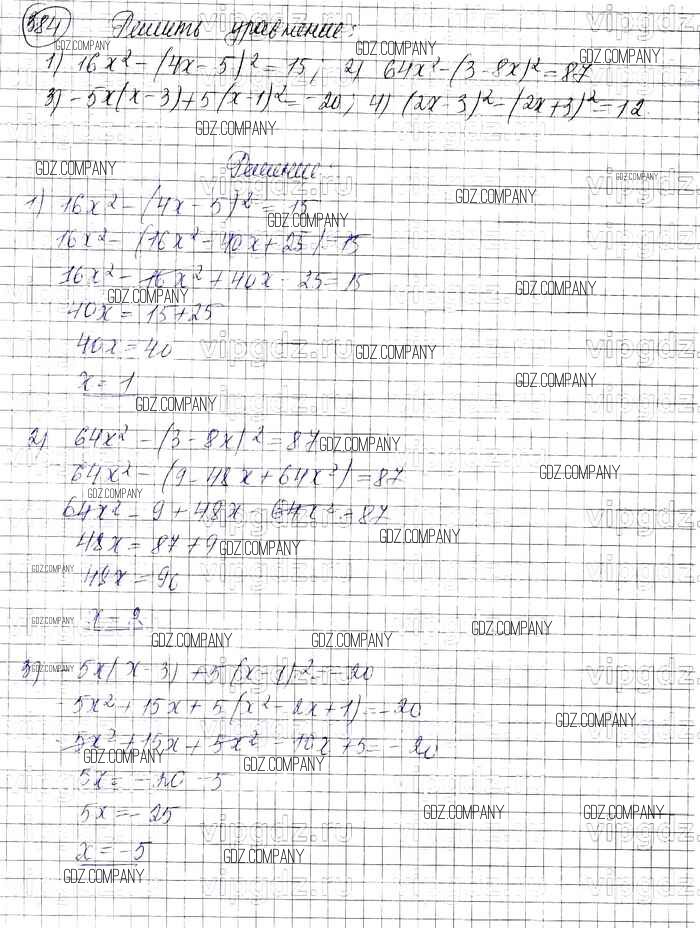 584 Решить уравнение:
1) 16x² - (4x - 5)² = 15; 2) 64x² - (3 - 8x)² = 87
3) - 5x(x - 3) + 5(x - 1)² = - 20; 4) (2x - 3)² - (2x + 3)² = 12
Решение:
1) 16x² - (4x - 5)² = 15
16x² - (16x² - 40x + 25) = 15
16x² - 16x² + 40x - 25 = 15
40x = 15 + 25
40x = 40
x = 1
2) 64x² - (3 - 8x)² = 87
64x² - (9 - 48x + 64x²) = 87
64x² - 9 + 48x - 64x² = 87
48x = 87 + 9
48x = 96
x = 2
3) - 5x(x - 3) + 5(x - 1)² = - 20
- 5x² + 15x + 5(x² - 2x + 1) = - 20
- 5x² + 15x + 5x² - 10x + 5 = - 20
5x = - 20 - 5
5x = - 25
x = - 5
GDZ.COMPANY
vipgdz.ru